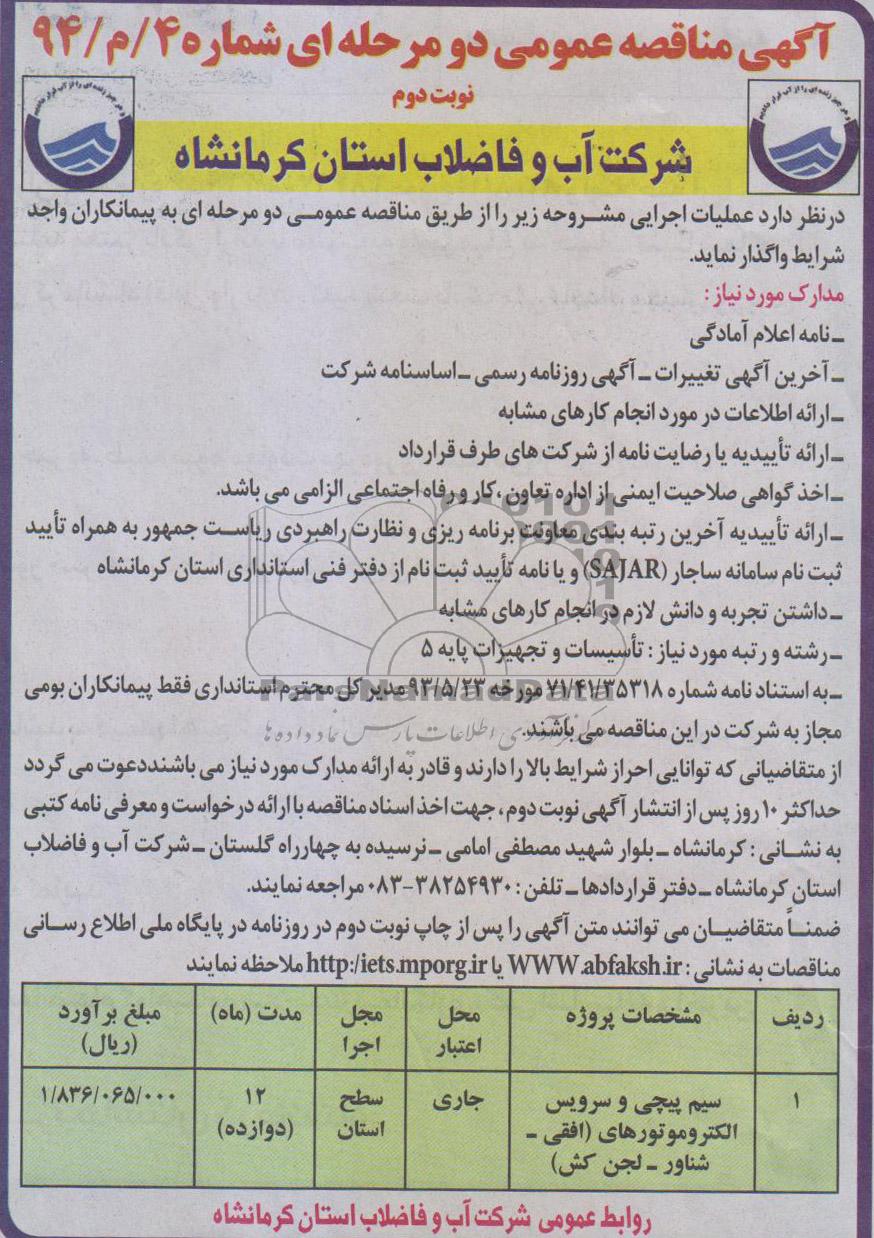 آگهی مناقصه عمومی دو مرحله ای شماره ۴/م/۹۴
نوبت دوم
شرکت آب و فاضلاب استان کرمانشاه
درنظر دارد عملیات اجرایی مشروحه زیر را از طریق مناقصه عمومی دو مرحله ای به پیمانکاران واجد
شرایط واگذار نماید.
مدارک مورد نیاز :
ـ نامه اعلام آمادگی
ـ آخرین آگهی تغییرات ـ آگهی روزنامه رسمی ـ اساسنامه شرکت
ـ ارائه اطلاعات در مورد انجام کارهای مشابه
ـ ارائه تأییدیه یا رضایت نامه از شرکت های طرف قرارداد
ـ اخذ گواهی صلاحیت ایمنی از اداره تعاون ،کار و رفاه اجتماعی الزامی می باشد.
ـ ارائه تأییدیه آخرین رتبه بندی معاونت برنامه ریزی و نظارت راهبردی ریاست جمهور به همراه تأیید
ثبت نام سامانه ساجار (SAJAR) و یا نامه تأیید ثبت نام از دفتر فنی استانداری استان کرمانشاه
ـ داشتن تجربه و دانش لازم در انجام کارهای مشابه
ـ رشته و رتبه مورد نیاز : تأسیسات و تجهیزات پایه ۵
ـ به استناد نامه شماره ۷۱/۴۱/۳۵۳۱۸ مورخه ۹۳/۵/۲۳ مدیر کل محترم استانداری فقط پیمانکاران بومی
مجاز به شرکت در این مناقصه می باشند.
از متقاضیانی که توانایی احراز شرایط بالا را دارند و قادر به ارائه مدارک مورد نیاز می باشنددعوت می گردد
حداکثر ۱۰ روز پس از انتشار آگهی نوبت دوم ، جهت اخذ اسناد مناقصه با ارائه درخواست و معرفی نامه کتبی
به نشانی : کرمانشاه ـ بلوار شهید مصطفی امامی ـ نرسیده به چهارراه گلستان ـ شرکت آب و فاضلاب
استان کرمانشاه ـ دفتر قراردادها ـ تلفن : ۳۸۲۵۴۹۳۰-۰۸۳ مراجعه نمایند.
ضمناً متقاضیان می توانند متن آگهی را پس از چاپ نوبت دوم در روزنامه در پایگاه ملی اطلاع رسانی
مناقصات به نشانی : WWW.abfaksh.ir یا http:/iets.mporg.ir ملاحظه نمایند
ردیف مشخصات پروژه محل اعتبار مجل اجرا مدت (ماه) مبلغ برآورد (ریال)
۱ سیم پیچی و سرویس الکتروموتورهای (افقی ـ شناور ـ لجن کش) جاری سطح استان ۱۲ (دوازده) ۱/۸۳۶/۰۶۵/۰۰۰
روابط عمومی شرکت آب و فاضلاب استان کرمانشاه
ParsNamadData